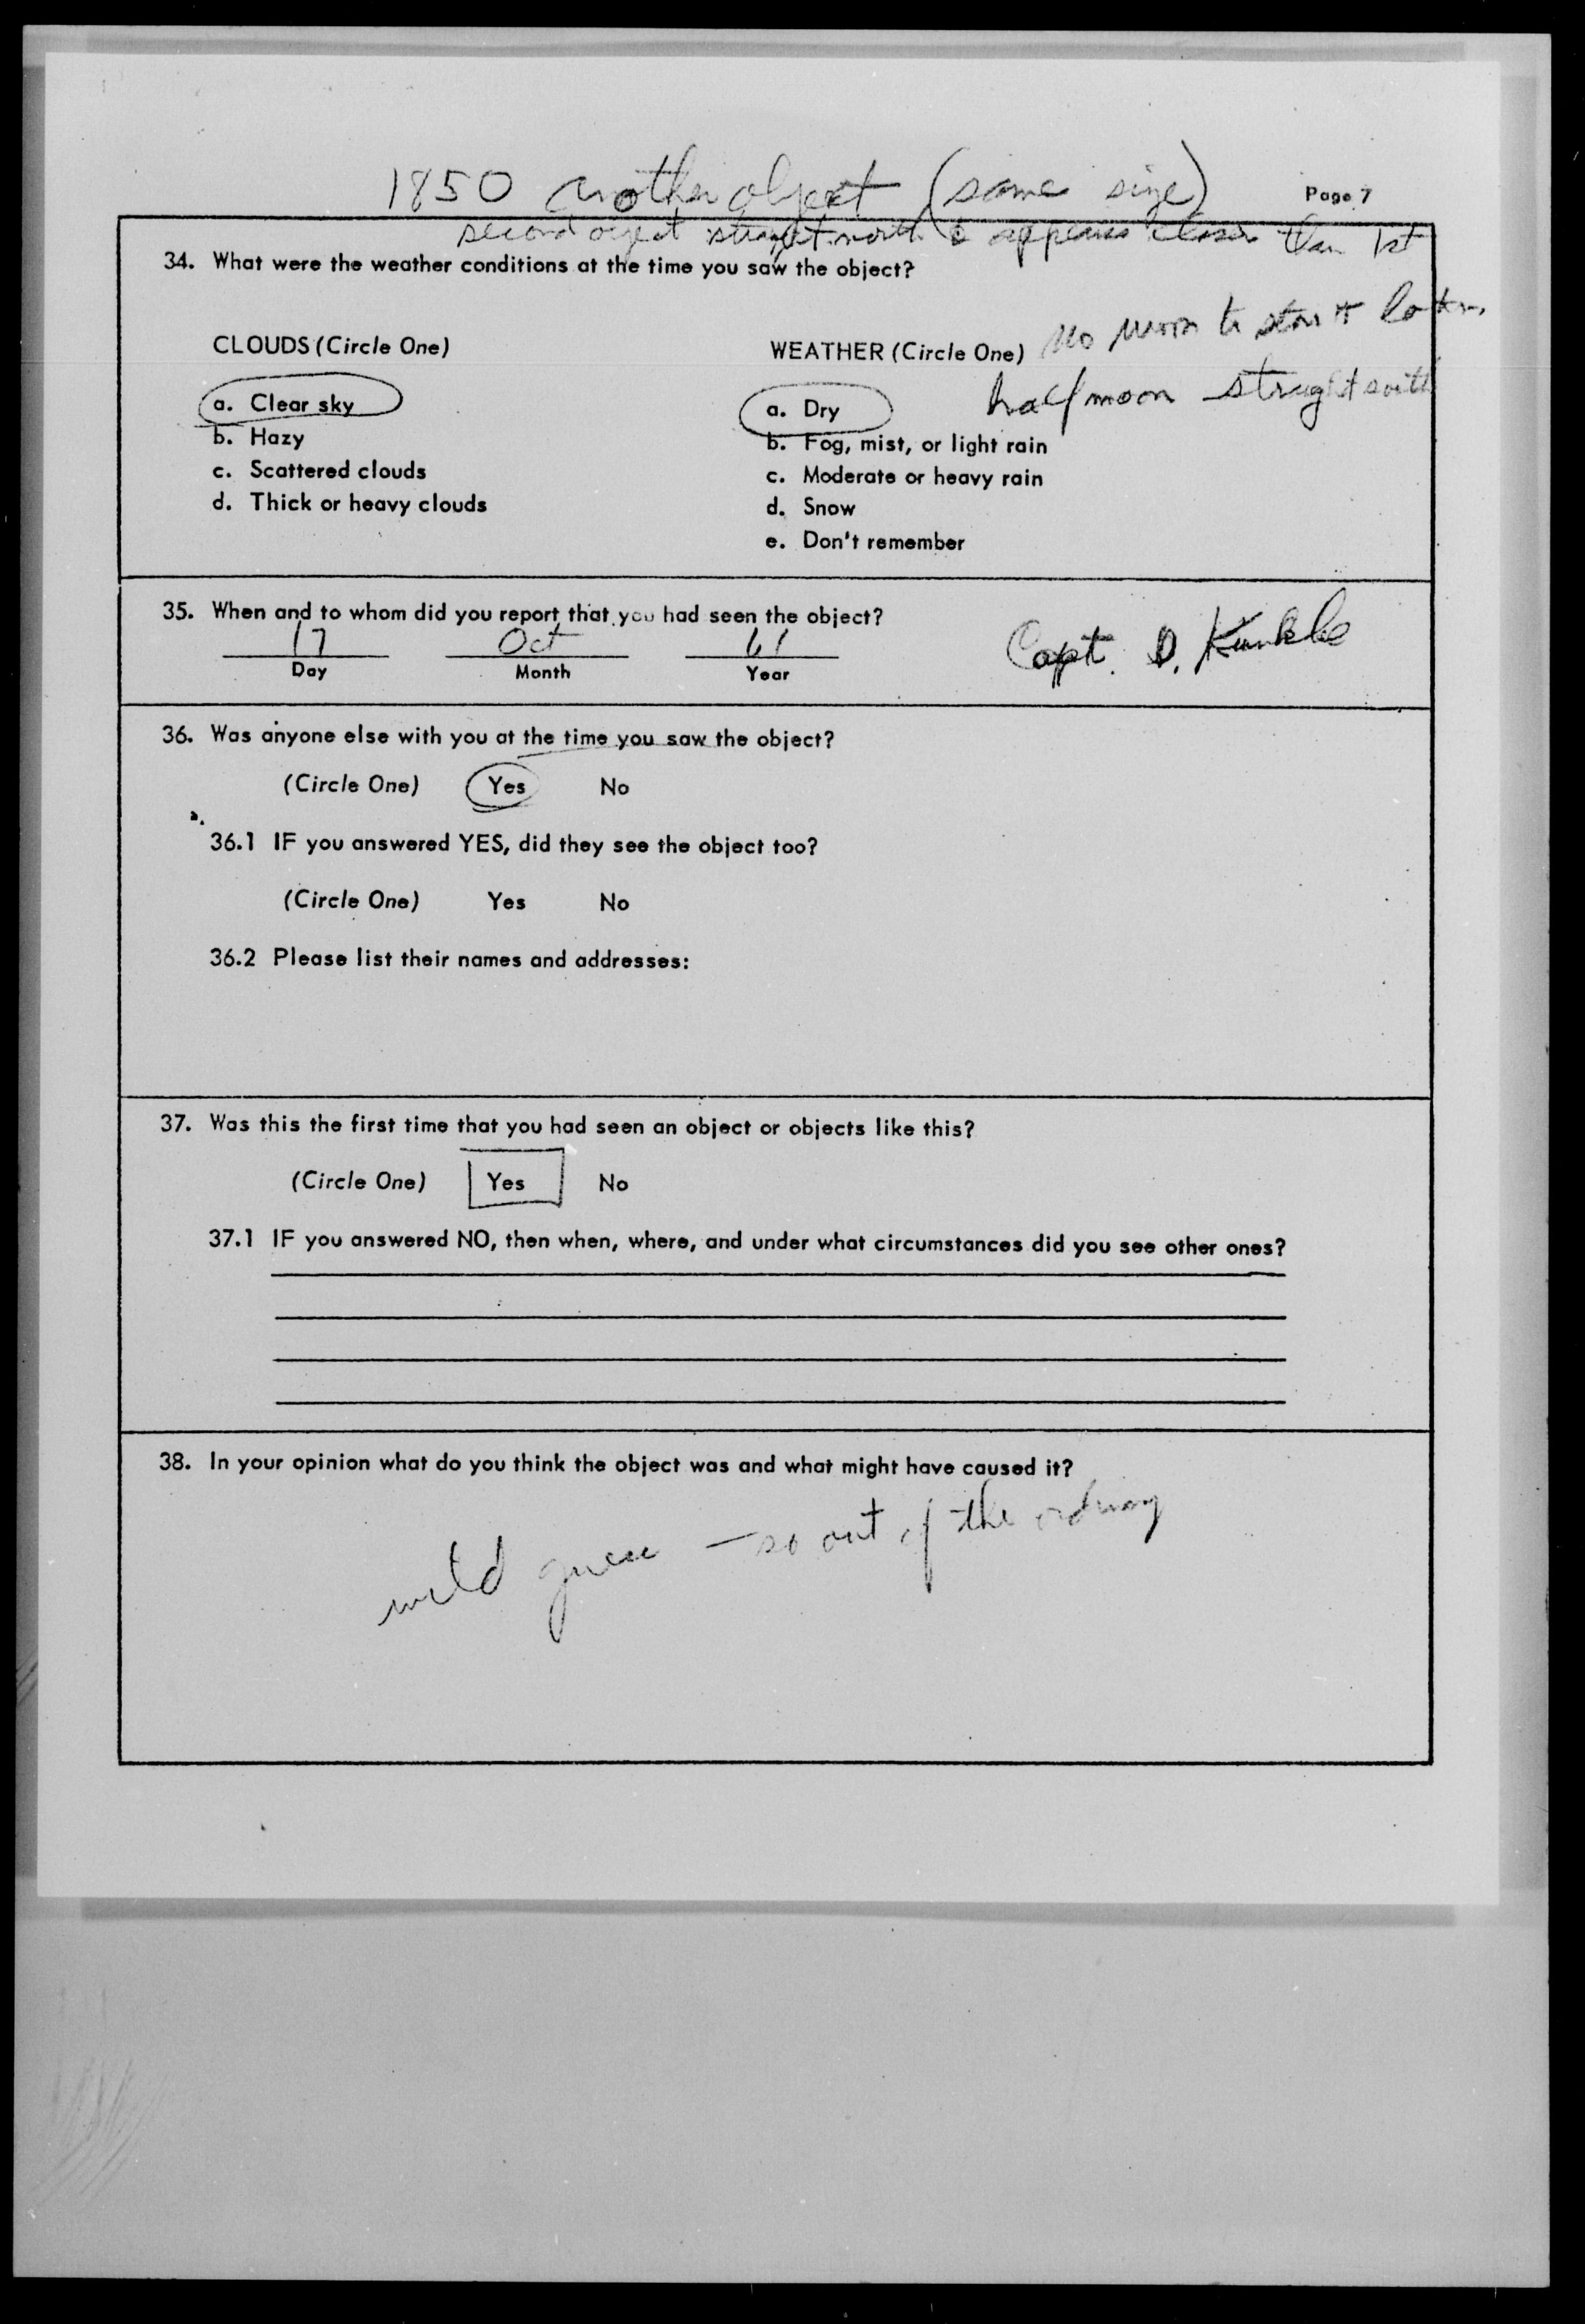 1850 another object (same size)
Page 7
second object straight north & appears closer than 1st
34. What were the weather conditions at the time you saw the object?
No moon to start later
half moon straight south
CLOUDS (Circle One)
WEATHER (Circle One)
a. Clear sky
a. Dry
b. Hazy
b. Fog, mist, or light rain
c. Scattered clouds
c. Moderate or heavy rain
d. Thick or heavy clouds
d. Snow
e. Don't remember
35. When and to whom did you report that you had seen the object?
17 Oct 61
Capt. D. Kunkle
Day Month Year
36. Was anyone else with you at the time you saw the object?
(Circle One) Yes No
36.1 IF you answered YES, did they see the object too?
(Circle One) Yes No
36.2 Please list their names and addresses:
37. Was this the first time that you had seen an object or objects like this?
(Circle One) Yes No
37.1 IF you answered NO, then when, where, and under what circumstances did you see other ones?
38. In your opinion what do you think the object was and what might have caused it?
wild guess — so out of the ordinary